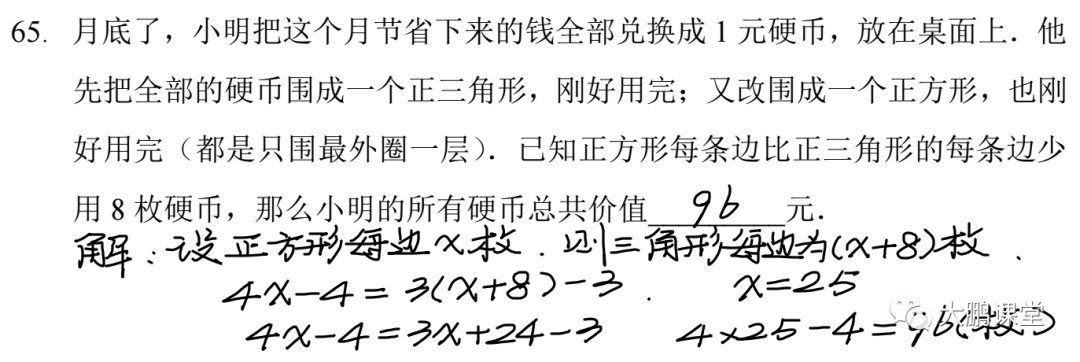 65. 月底了，小明把这个月节省下来的钱全部兑换成 1 元硬币，放在桌面上．他
先把全部的硬币围成一个正三角形，刚好用完；又改围成一个正方形，也刚
好用完（都是只围最外圈一层）．已知正方形每条边比正三角形的每条边少
用 8 枚硬币，那么小明的所有硬币总共价值 96 元．
解：设正方形每边x枚．则三角形每边为(x+8)枚．
4x-4=3(x+8)-3． x=25
4x-4=3x+24-3 4×25-4=96(枚)
大鹏课堂